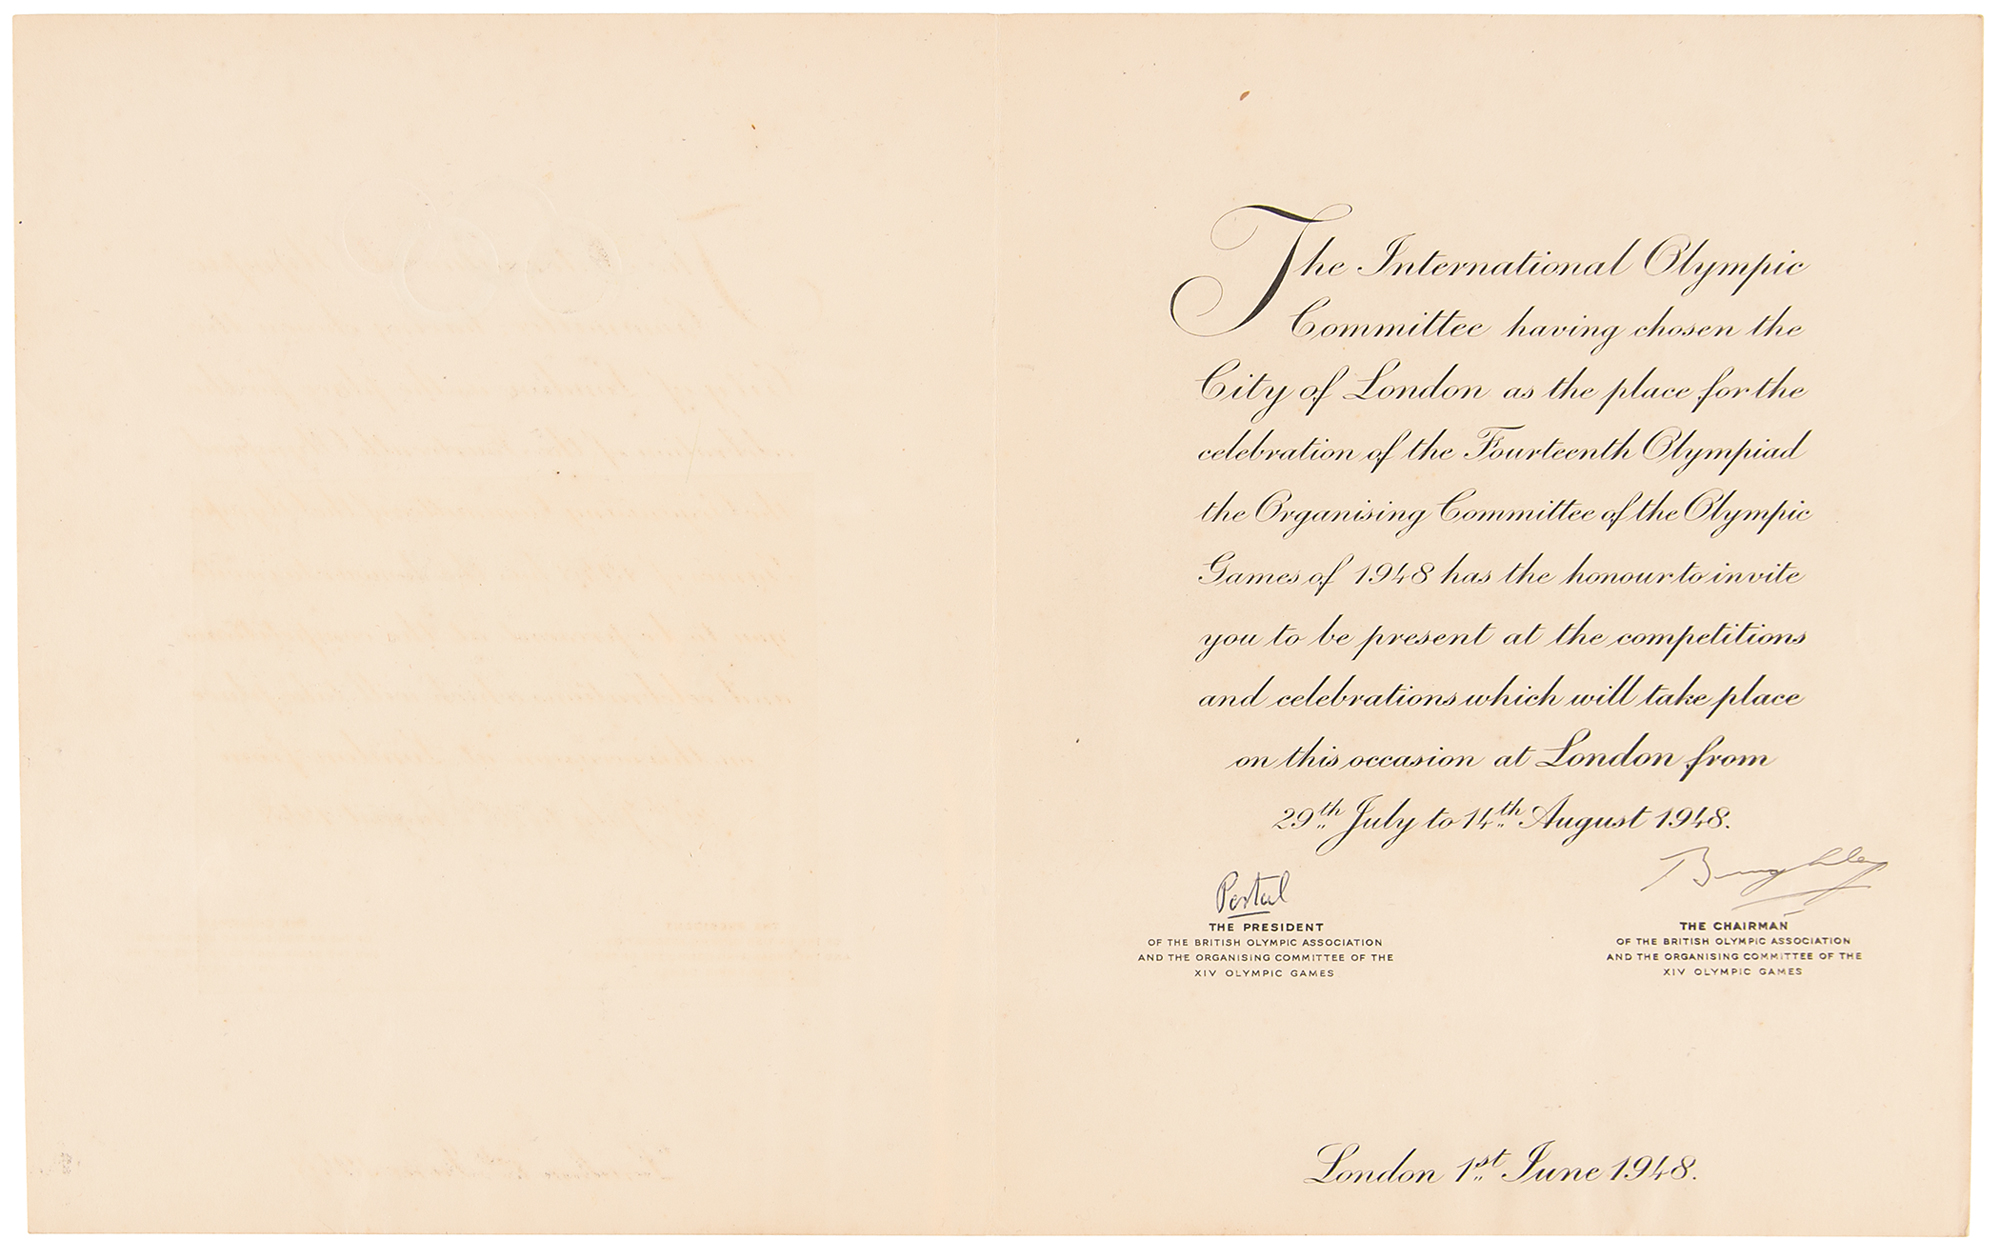 The International Olympic
Committee having chosen the
City of London as the place for the
celebration of the Fourteenth Olympiad
the Organising Committee of the Olympic
Games of 1948 has the honour to invite
you to be present at the competitions
and celebrations which will take place
on this occasion at London from
29th July to 14th August 1948.
Portal
THE PRESIDENT
OF THE BRITISH OLYMPIC ASSOCIATION
AND THE ORGANISING COMMITTEE OF THE
XIV OLYMPIC GAMES
Burghley
THE CHAIRMAN
OF THE BRITISH OLYMPIC ASSOCIATION
AND THE ORGANISING COMMITTEE OF THE
XIV OLYMPIC GAMES
London 1st June 1948.